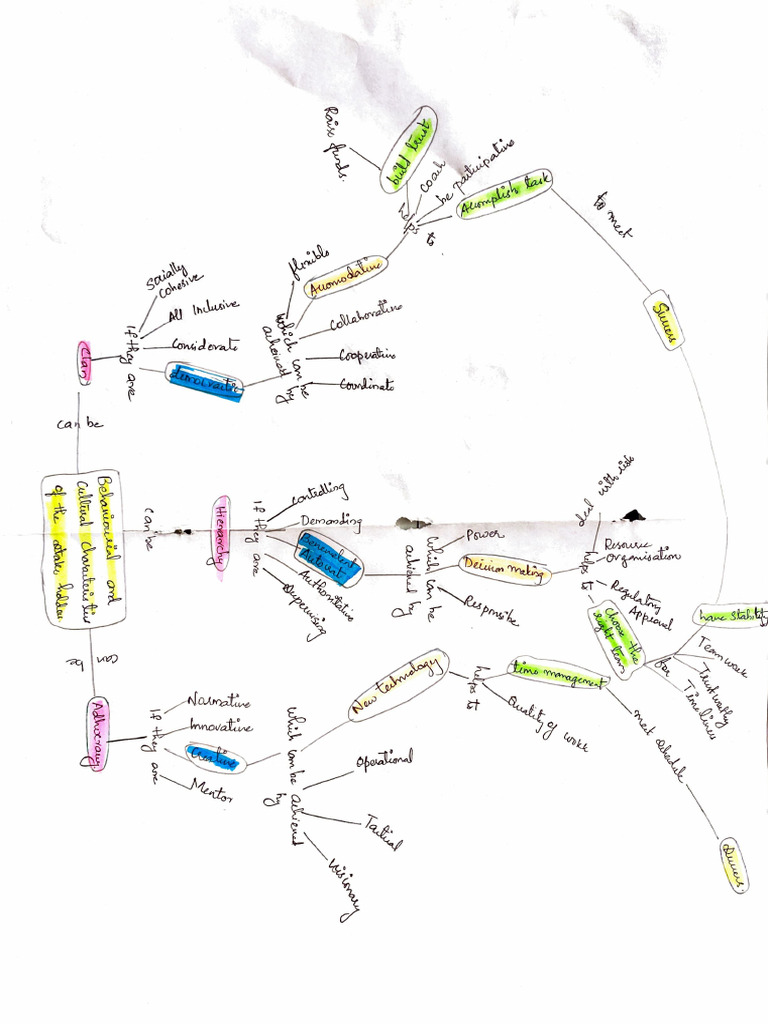 Behavioural and
Cultural Characteristics
of the stake holders
can be
Clan
If they are
Socially
Cohesive
All Inclusive
Considerate
democratic
which can be
achieved by
flexible
Accomodative
Collaborative
Cooperative
Coordinate
helps
to
Raise funds.
build trust
coach
be participative
Accomplish task
to meet
Success
can be
Hierarchy
If they are
Controlling
Demanding
Benevolent
Autocrat
Authoritative
Supervising
which can be
achieved by
Power
Decision making
Responsibe
helps to
deal with risk
Resource
Organisation
Regulatory
Approval
Choose the
right lens
for
have stability
Team work
Trustworthy
Timeliness
can be
Adhocracy
If they are
Narrative
Innovative
Creative
Mentor
which can be achieved
by
New technology
Operational
Tactical
Visionary
helps to
time management
Quality of work
meet schedule